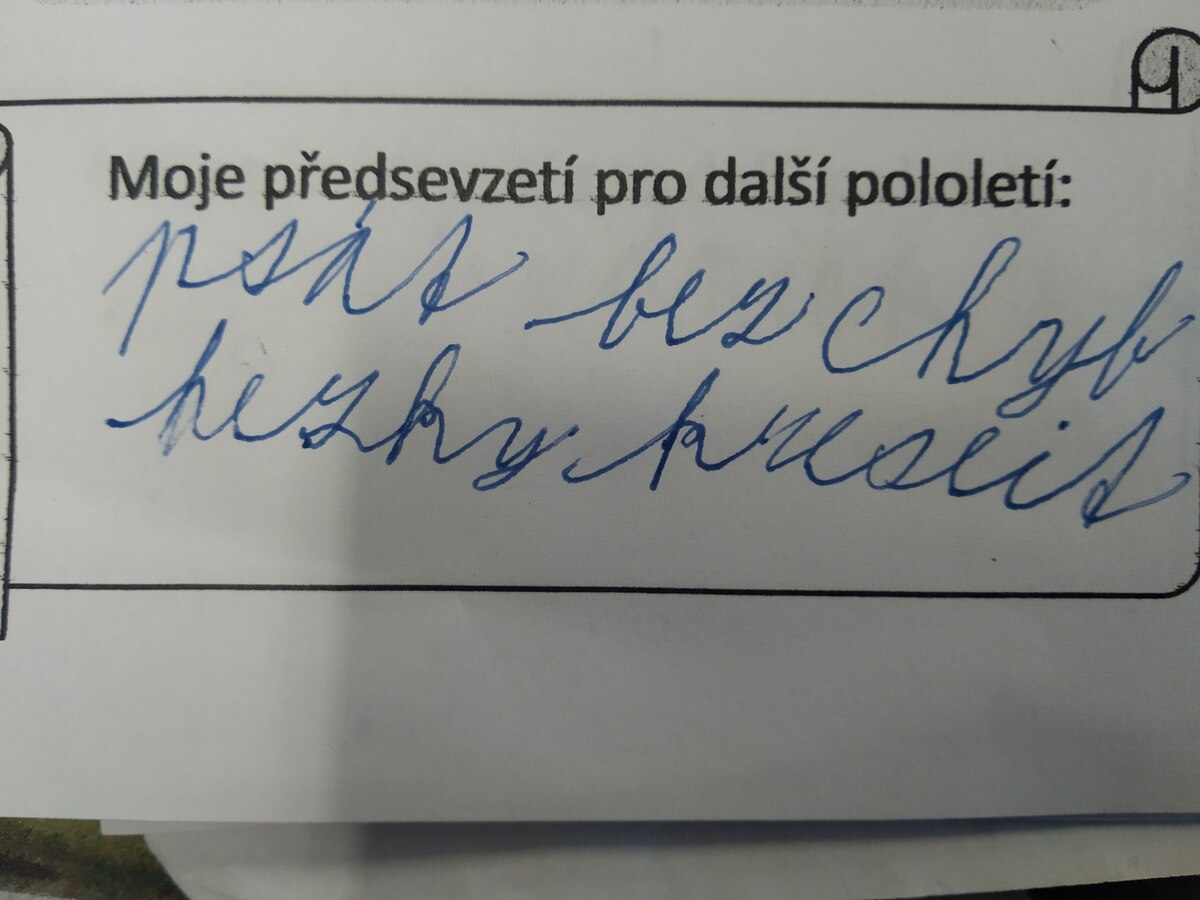 Moje předsevzetí pro další pololetí:
psát bez chyb
hezky kreslit